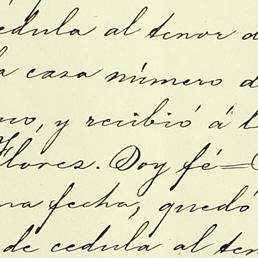 cedula al tenor d
la casa número d
no, y recibió á l
Flores. Doy fé=
na fecha, quedó
de cedula al ten